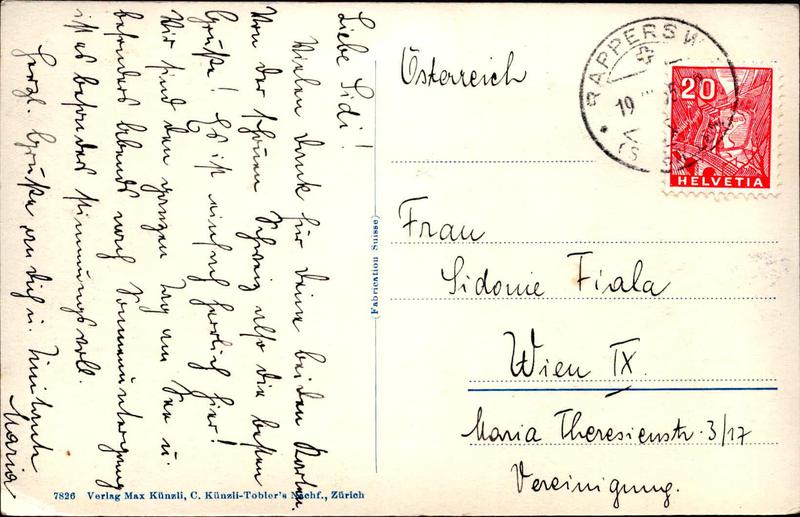 Liebe Sidi!
Vielen Dank für Deine beiden Karten.
Von der schönen Schweiz also die besten
Grüße! Es ist einfach herrlich hier!
Wir sind den ganzen Tag am See u.
besonders abends nach Sonnenuntergang
ist es besonders stimmungsvoll.
Herzl. Grüße an Dich u.
Maria
Österreich
RAPPERSW
19
20
HELVETIA
Frau
Sidonie Fiala
Wien IX.
Maria Theresienstr. 3/17
Vereinigung.
(Fabrication Suisse)
7826 Verlag Max Künzli, C. Künzli-Tobler's Nachf., Zürich